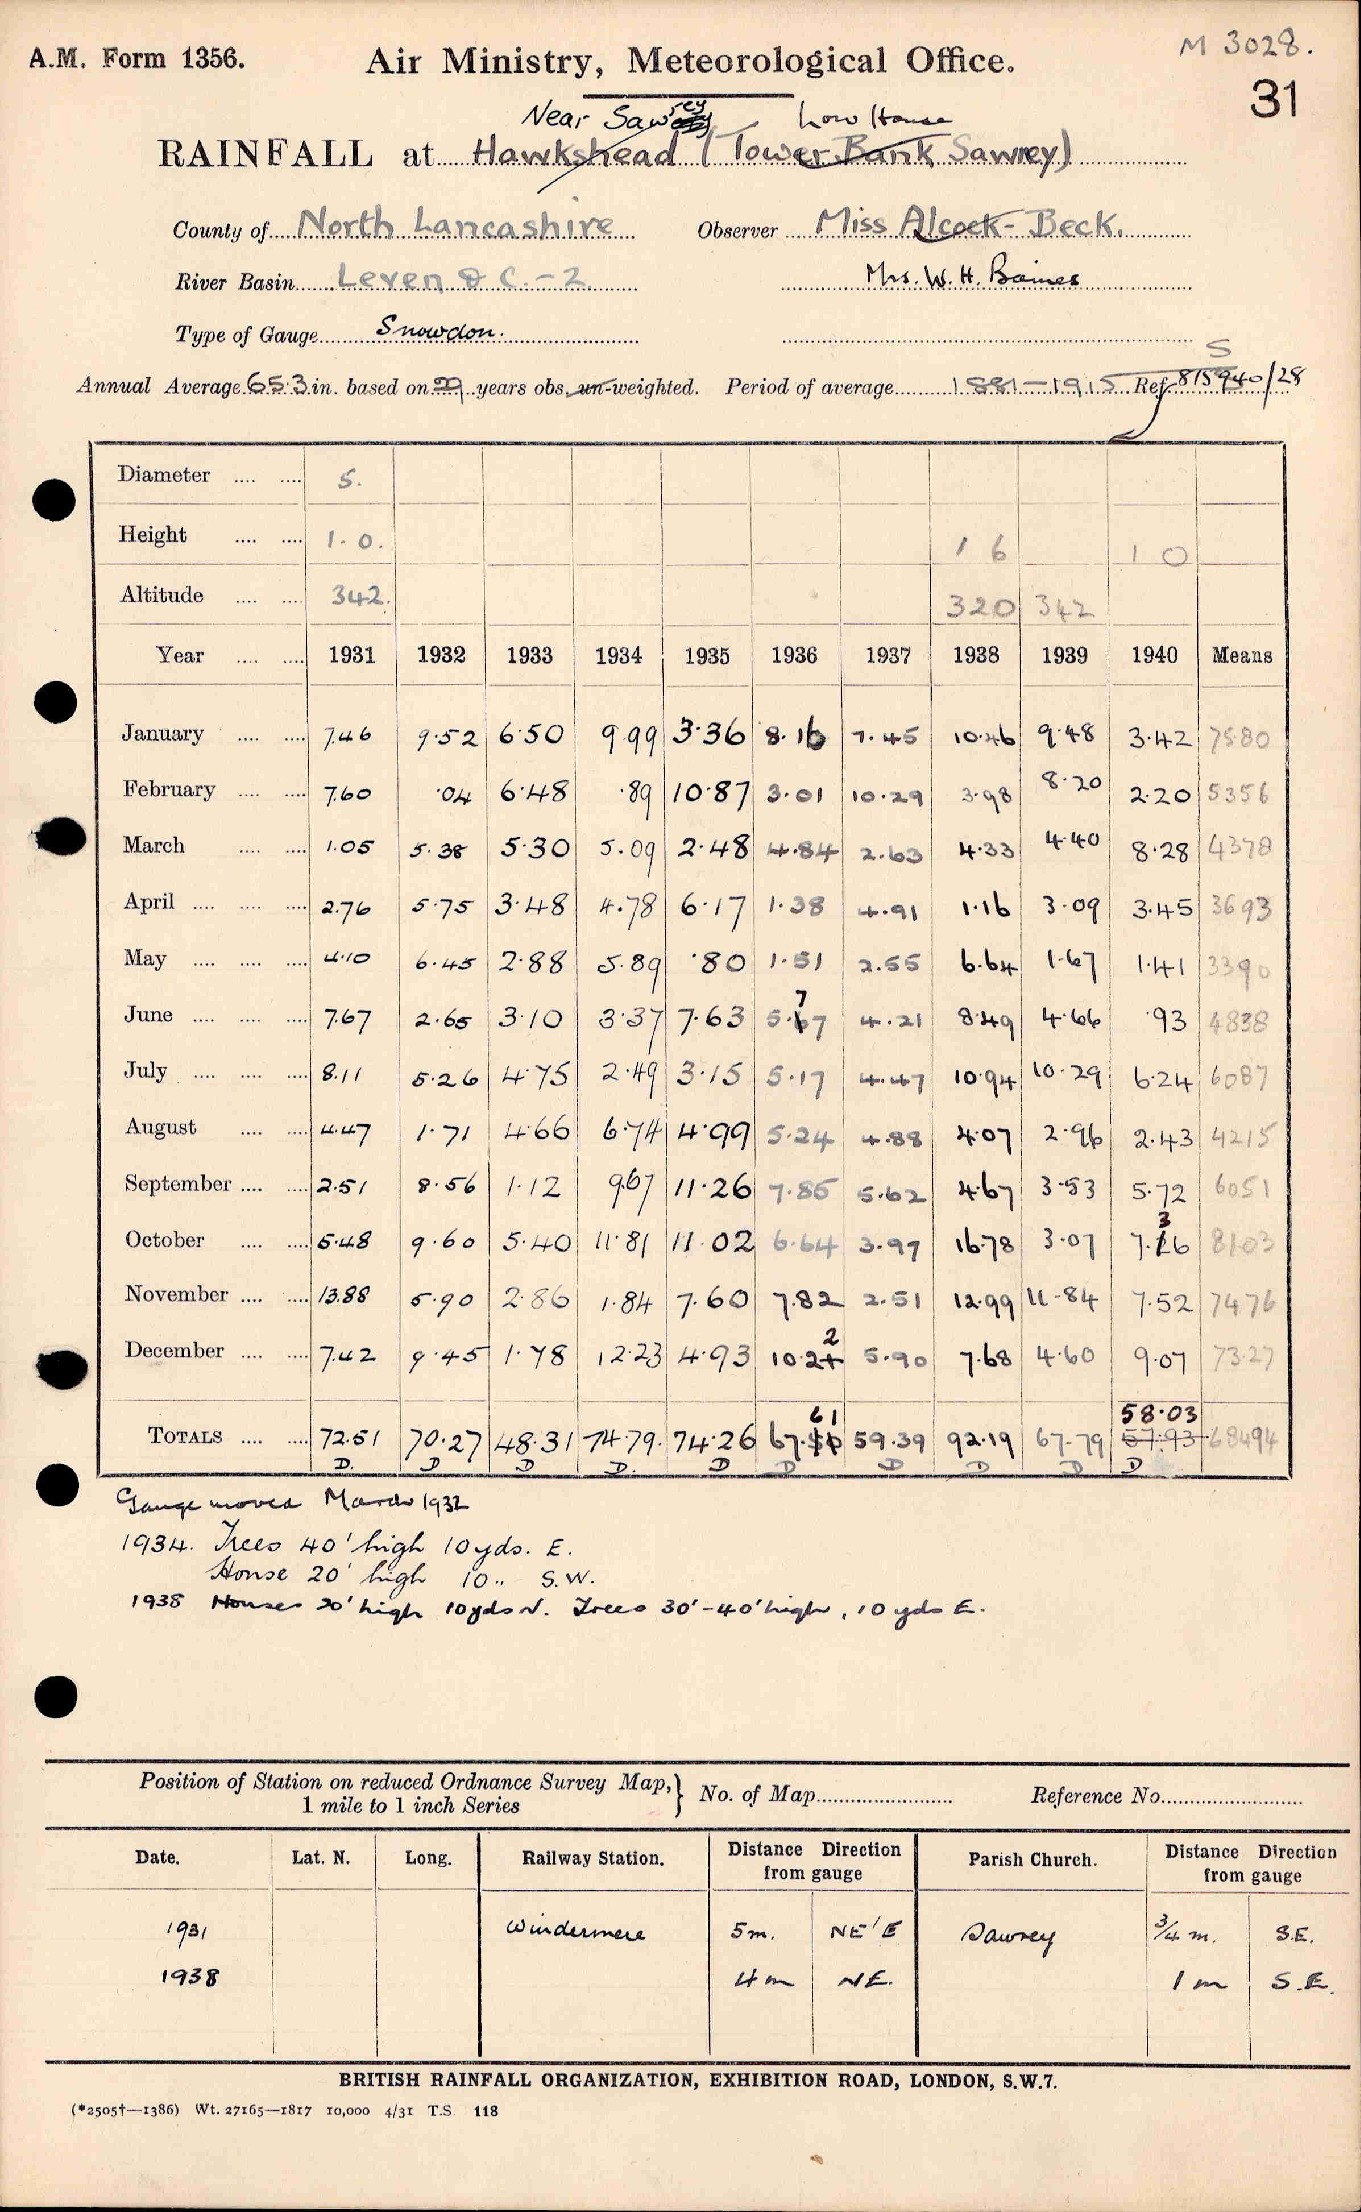 M 3028.
A.M. Form 1356. Air Ministry, Meteorological Office.
31
Near Sawrey Low House
RAINFALL at Hawkshead (Tower Bank Sawrey)
County of North Lancashire Observer Miss Alcock-Beck.
River Basin Leven & C.-2 Mrs. W. H. Baines
Type of Gauge Snowdon.
S
Annual Average 65.3 in. based on 29 years obs. un-weighted. Period of average 1881-1915 Ref 815940/28
Diameter .... .... 5.
Height .... .... 1.0. 1 6 1 0
Altitude .... .... 342. 320 342
Year .... .... 1931 1932 1933 1934 1935 1936 1937 1938 1939 1940 Means
January .... .... 7.46 9.52 6.50 9.99 3.36 8.16 7.45 10.46 9.48 3.42 7580
February .... .... 7.60 .04 6.48 .89 10.87 3.01 10.29 3.98 8.20 2.20 5356
March .... .... 1.05 5.38 5.30 5.09 2.48 4.84 2.63 4.33 4.40 8.28 4378
April .... .... .... 2.76 5.75 3.48 4.78 6.17 1.38 4.91 1.16 3.09 3.45 3693
May .... .... .... 4.10 6.45 2.88 5.89 .80 1.51 2.55 6.64 1.67 1.41 3390
7
June .... .... .... 7.67 2.65 3.10 3.37 7.63 5.67 4.21 8.49 4.66 .93 4838
July .... .... .... 8.11 5.26 4.75 2.49 3.15 5.17 4.47 10.94 10.29 6.24 6087
August .... .... 4.47 1.71 4.66 6.74 4.99 5.24 4.88 4.07 2.96 2.43 4215
September .... .... 2.51 8.56 1.12 9.67 11.26 7.85 5.62 4.67 3.53 5.72 6051
3
October .... .... 5.48 9.60 5.40 11.81 11.02 6.64 3.97 16.78 3.07 7.26 8103
November .... .... 13.88 5.90 2.86 1.84 7.60 7.82 2.51 12.99 11.84 7.52 7476
2
December .... .... 7.42 9.45 1.78 12.23 4.93 10.24 5.90 7.68 4.60 9.07 7327
61 58.03
TOTALS .... .... 72.51 70.27 48.31 74.79. 74.26 67. 59.39 92.19 67.79 57.93 68494
D. D D D. D D D D D D
Gauge moved March 1932
1934. Trees 40' high 10 yds. E.
House 20' high 10 " S.W.
1938 Houses 20' high 10 yds N. Trees 30'-40' high, 10 yds E.
Position of Station on reduced Ordnance Survey Map,} No. of Map Reference No.
1 mile to 1 inch Series
Date. Lat. N. Long. Railway Station. Distance Direction from gauge Parish Church. Distance Direction from gauge
1931 Windermere 5 m. NE'E Sawrey 3/4 m. S.E.
1938 4 m NE. 1 m S.E.
BRITISH RAINFALL ORGANIZATION, EXHIBITION ROAD, LONDON, S.W.7.
(*2505†—1386) Wt. 27165—1817 10,000 4/31 T.S. 118